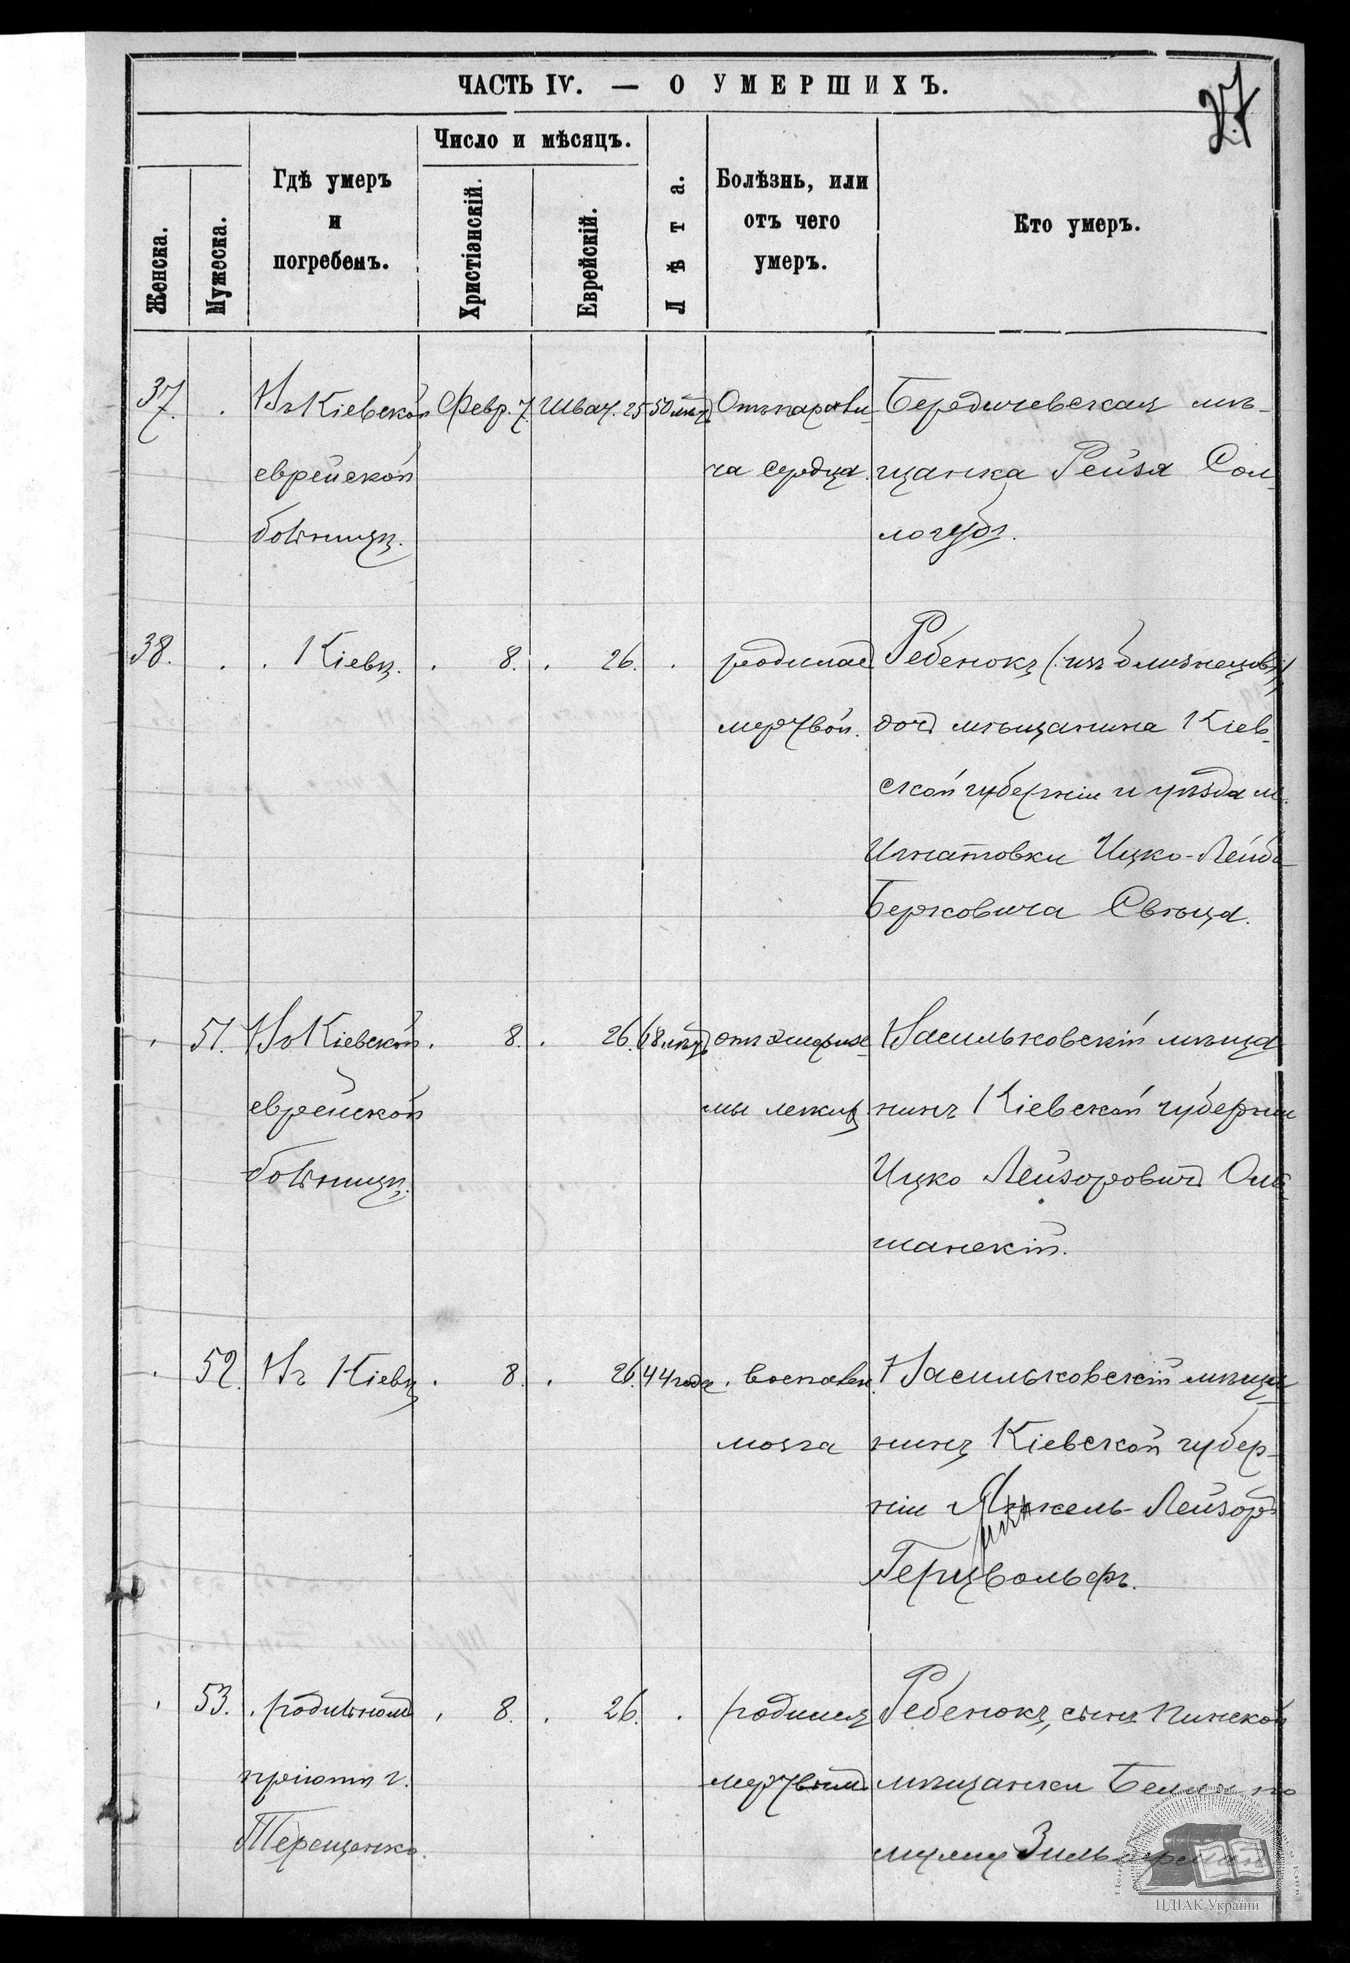 ЧАСТЬ IV. — О УМЕРШИХЪ.
27
Женска.
Мужеска.
Гдѣ умеръ
и
погребенъ.
Число и мѣсяцъ.
Христіанскій.
Еврейскій.
Лѣта.
Болѣзнь, или
отъ чего
умеръ.
Кто умеръ.
37. . Въ Кіевской Февр. 7. Шват. 25 50 лѣтъ Отъ парали- Бердичевская мѣ-
еврейской ча сердца. щанка Рейзя Сол-
больницѣ. логубъ.
38. . . Кіевѣ. . 8. . 26. . родилась Ребенокъ (изъ близнецовъ),
мертвой. дочь мѣщанина Кіев-
ской губерніи и уѣзда м.
Игнатовки Ицко-Лейба
Берковича Свѣца.
. 51. Въ Кіевской . 8. . 26. 68 лѣтъ отъ эмфизе- Васильковскій мѣща-
еврейской мы легкихъ нинъ Кіевской губерніи
больницѣ. Ицко Лейзоровичъ Оль-
шанскій.
. 52. Въ Кіевѣ . 8. . 26. 44 года . воспален. Васильковскій мѣща-
мозга нинъ Кіевской губер-
ніи Янкель-Лейзоръ
Герцвольфъ.
. 53. . родильномъ . 8. . 26. . родился Ребенокъ, сынъ Пинской
пріютѣ г. мертвымъ мѣщанки Бейлы по
Терещенко. мужу Зильберманъ
ЦДІАК України